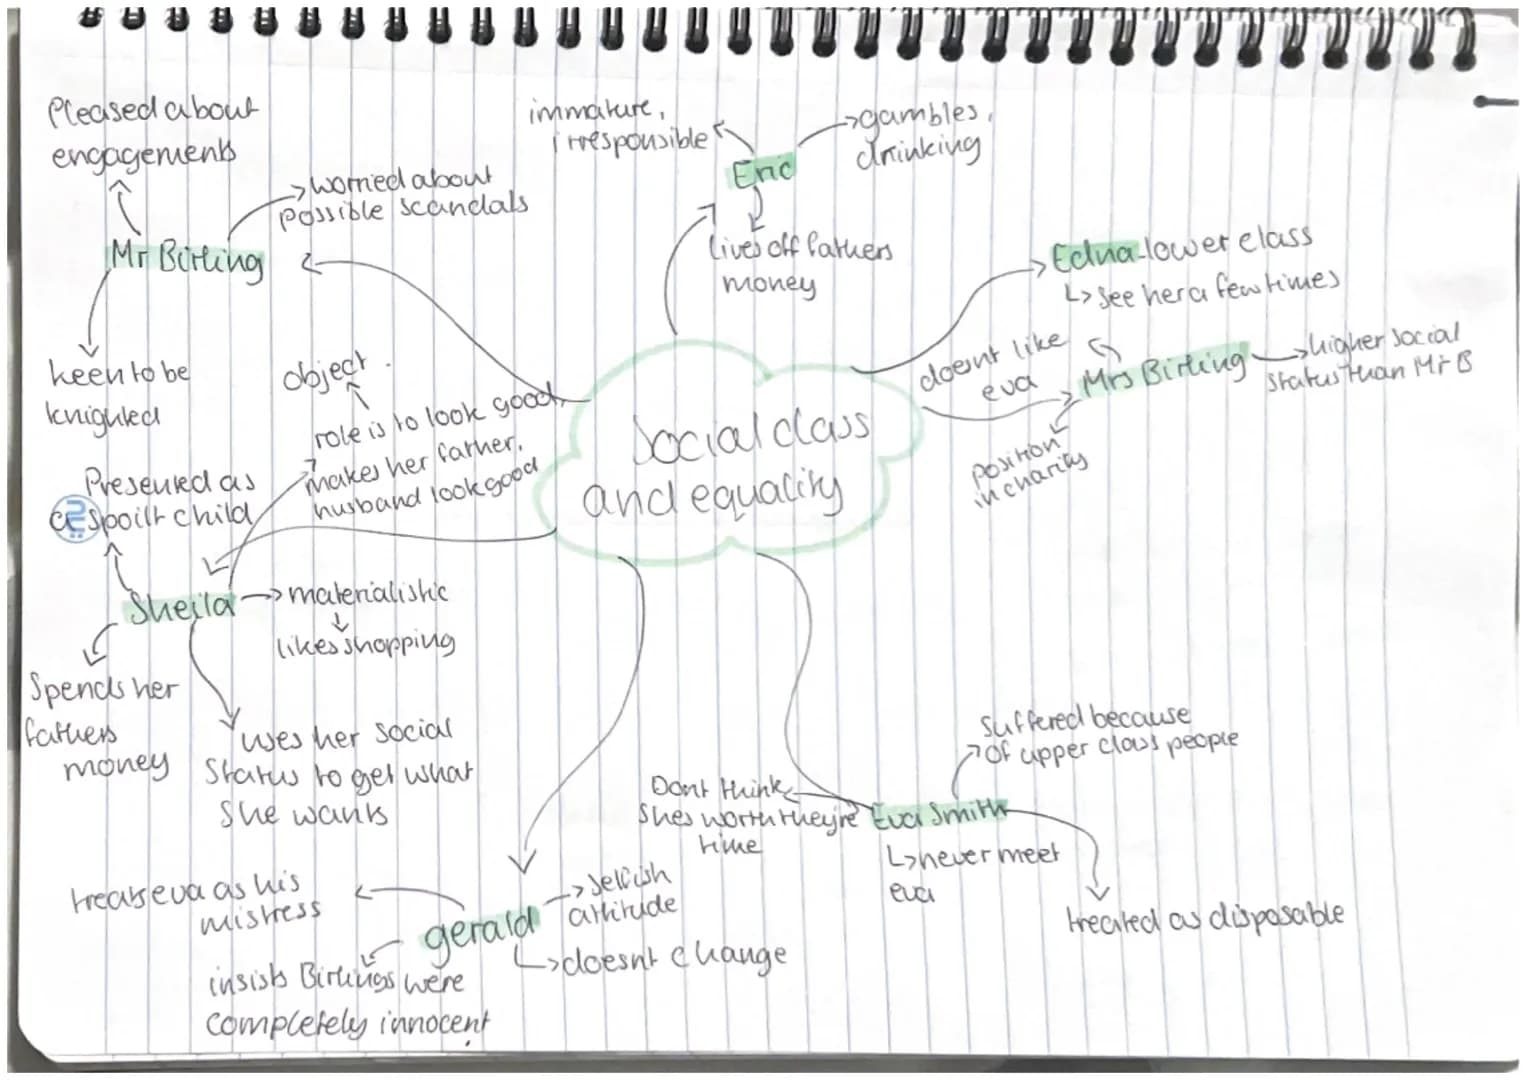 Social class
and equality
Mr Birling
Pleased about
engagement
worried about
possible scandals
keen to be
knighted
Eric
immature,
irresponsible
gambles,
drinking
lives off fathers
money
Edna - lower class
see her a few times
Mrs Birling
doesnt like
eva
higher social
status than Mr B
position
in charity
Sheila
Presented as
a spoilt child
object
role is to look good,
makes her father,
husband look good
materialistic
likes shopping
Spends her
fathers
money
uses her social
status to get what
she wants
gerald
treats eva as his
mistress
selfish
attitude
doesnt change
insists Birlings were
completely innocent
Eva Smith
Suffered because
of upper class people
Dont think
shes worth they're
time
never meet
eva
treated as disposable